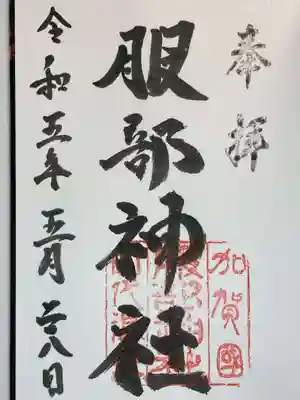 奉拝
加賀國
服部神社
令和五年五月廿八日